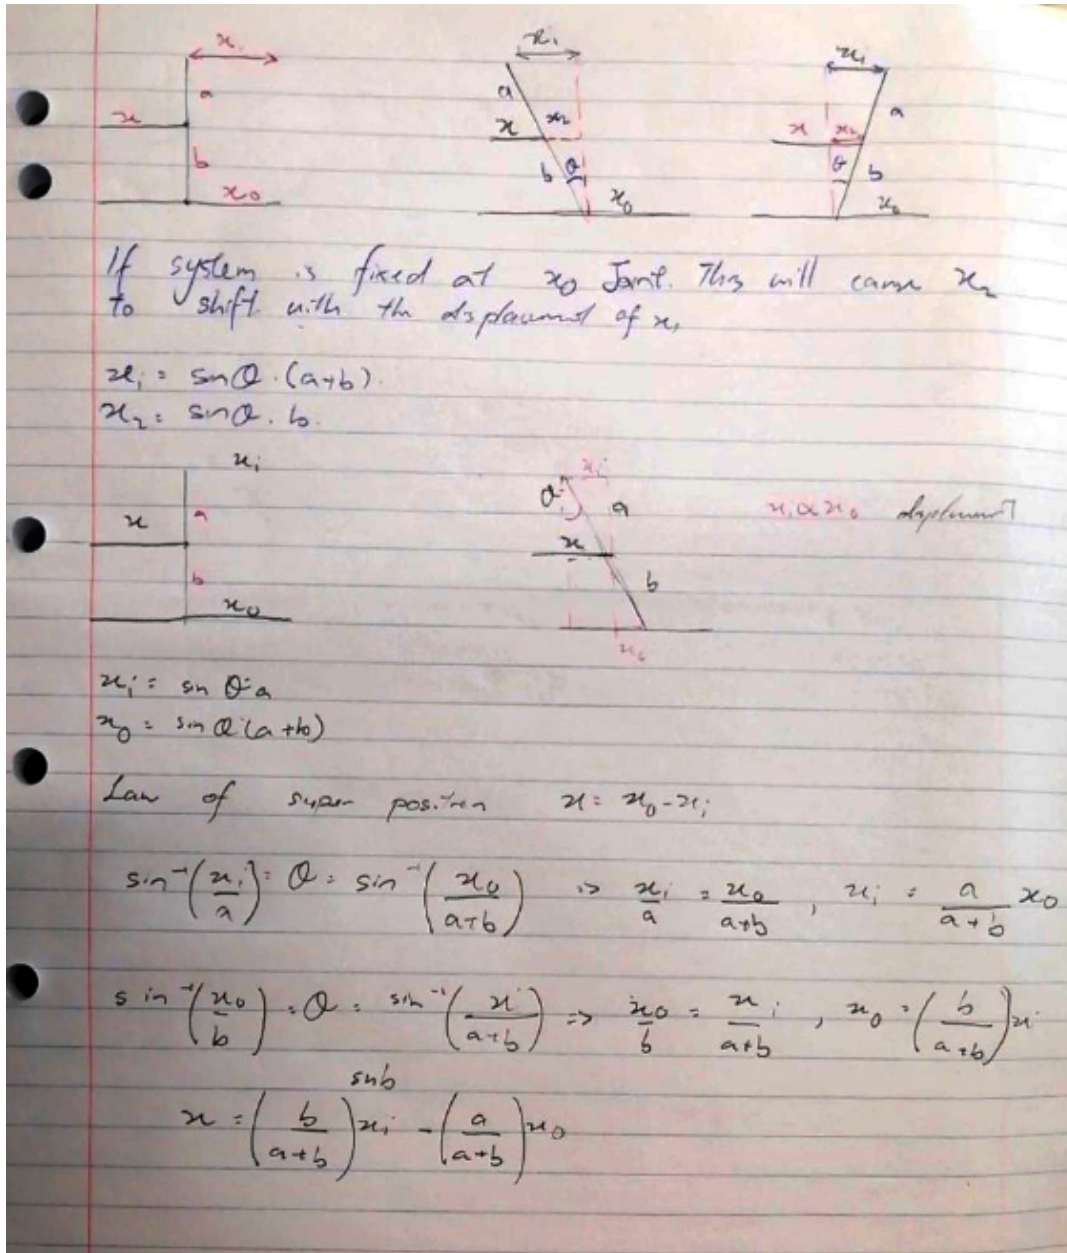 x₁ x₁ x₁
a a a
x x x₂ x x₂
b b θ θ b
x₀ x₀ x₀
If system is fixed at x₀ Joint. This will cause x₂
to shift with the displacement of x₁
xᵢ = sinθ.(a+b).
x₂ = sinθ. b.
xᵢ xᵢ
a θ a xᵢ α x₀ displacement
x x
b b
x₀ x₀
xᵢ = sin θ·a
x₀ = sin θ·(a+b)
Law of super position x = x₀ - xᵢ
sin⁻¹(xᵢ/a) = θ = sin⁻¹(x₀/(a+b)) => xᵢ/a = x₀/(a+b), xᵢ = a/(a+b) x₀
sin⁻¹(x₀/b) = θ = sin⁻¹(xᵢ/(a+b)) => x₀/b = xᵢ/(a+b), x₀ = (b/(a+b))xᵢ
sub
x = (b/(a+b))xᵢ - (a/(a+b))x₀